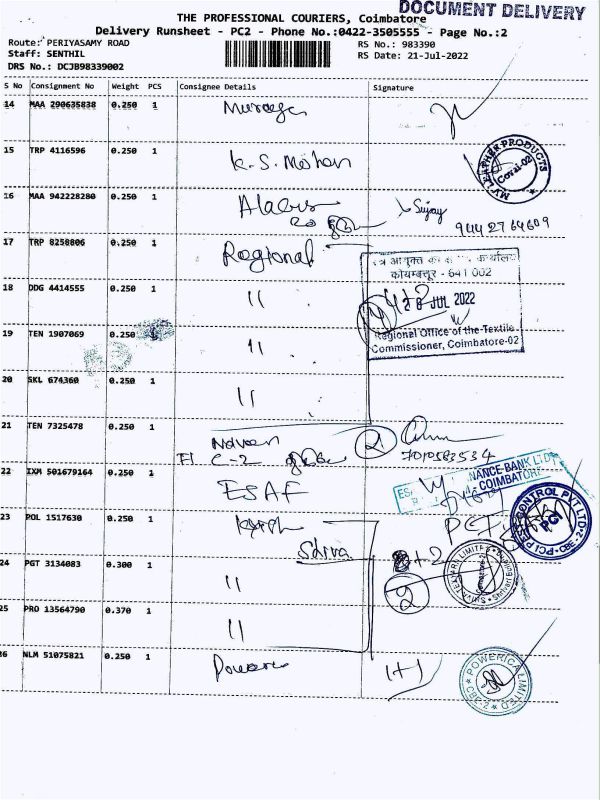 DOCUMENT DELIVERY
THE PROFESSIONAL COURIERS, Coimbatore
Delivery Runsheet - PC2 - Phone No.:0422-3505555 - Page No.:2
Route: PERIYASAMY ROAD
RS No.: 983390
Staff: SENTHIL
RS Date: 21-Jul-2022
DRS No.: DCJB98339002
S No Consignment No Weight PCS Consignee Details Signature
14 MAA 290635838 0.250 1
15 TRP 4116596 0.250 1 K. S. Mohan
MV LEATHER PRODUCTS
16 MAA 942228280 0.250 1
Sujay
9442764609
17 TRP 8258806 0.250 1 Regional
कोयम्बत्तूर - 641 002
18 DDG 4414555 0.250 1 11
28 JUL 2022
Regional Office of the Textile
Commissioner, Coimbatore-02
19 TEN 1907069 0.250 1 11
20 SKL 674360 0.250 1 11
21 TEN 7325478 0.250 1 Naveen
C-2
2
7010583534
22 IXM 501679164 0.250 1 ESAF
NANCE BANK LTD
COIMBATORE
PCI PEST CONTROL PVT LTD.
CBE-2
PCI
23 POL 1517630 0.250 1
Shiva
+2
24 PGT 3134083 0.300 1 11
2
25 PRO 13564790 0.370 1 11
26 NLM 51075821 0.250 1
1+1
POWERICA LIMITED
CBE-2